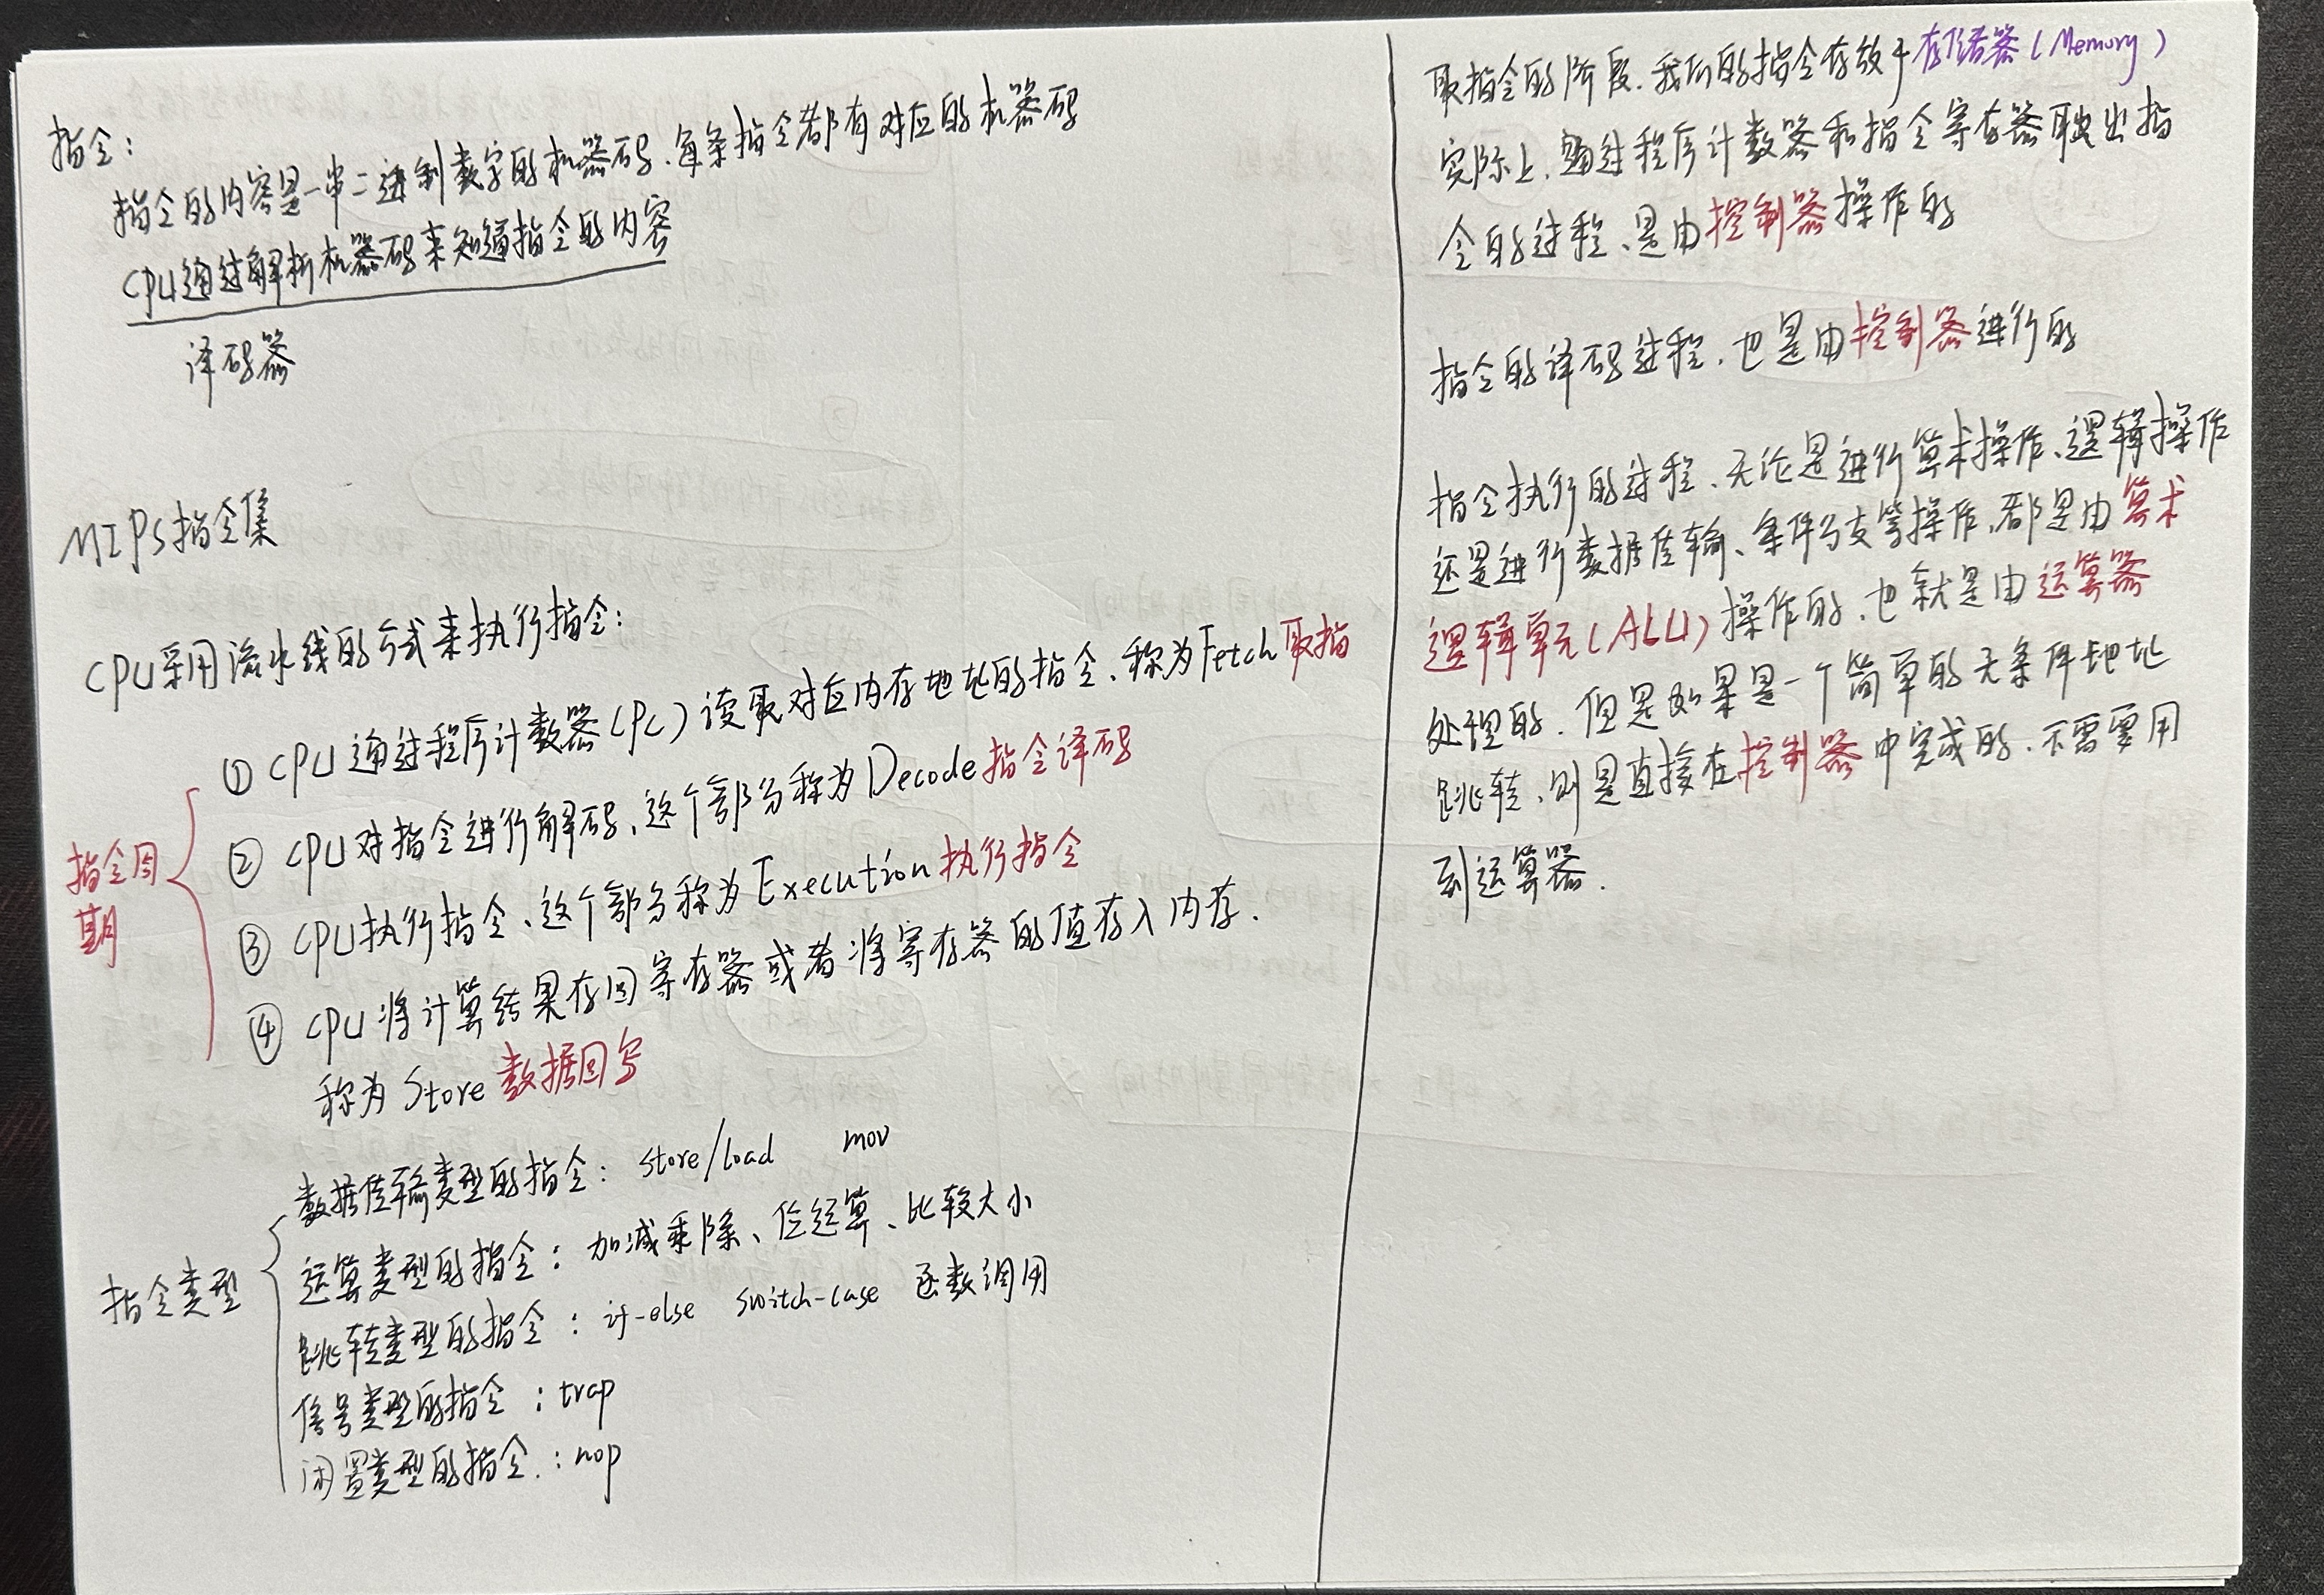 指令：
指令的内容是一串二进制数字的机器码、每条指令都有对应的机器码
CPU通过解析机器码来知道指令的内容
译码器
MIPS指令集
CPU采用流水线的方式来执行指令：
① CPU通过程序计数器(PC)读取对应内存地址的指令、称为Fetch取指
② CPU对指令进行解码、这个部分称为Decode指令译码
③ CPU执行指令、这个部分称为Execution执行指令
④ CPU将计算结果存回寄存器或者将寄存器的值存入内存.
称为Store数据回写
指令周
期
数据传输类型的指令：store/load mov
运算类型的指令：加减乘除、位运算、比较大小
跳转类型的指令：if-else switch-case 函数调用
信号类型的指令：trap
闲置类型的指令.：nop
指令类型
取指令的阶段.我们的指令存放于存储器(Memory)
实际上.通过程序计数器和指令寄存器取出指
令的过程、是由控制器操作的
指令的译码过程.也是由控制器进行的
指令执行的过程、无论是进行算术操作、逻辑操作
还是进行数据传输、条件分支等操作、都是由算术
逻辑单元(ALU)操作的.也就是由运算器
处理的.但是如果是一个简单的无条件地址
跳转、则是直接在控制器中完成的.不需要用
到运算器.